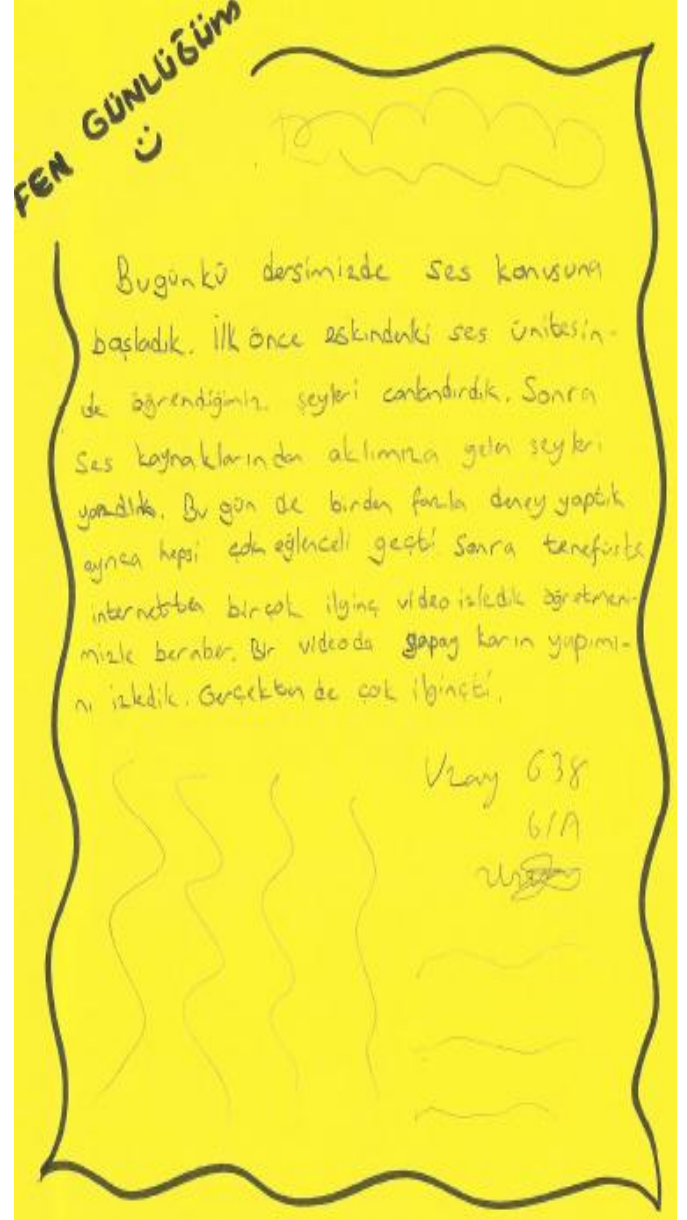 FEN GÜNLÜĞÜM
Bugünkü dersimizde ses konusuna
başladık. İlk önce eskindenki ses ünitesin-
de öğrendiğimiz şeyleri canlandırdık. Sonra
Ses kaynaklarından aklımıza gelen şeyleri
yazdık. Bu gün de birden fazla deney yaptık
ayrıca hepsi çok eğlenceli geçti. Sonra tenefüste
internetten birçok ilginç video izledik öğretmeni-
mizle beraber. Bir videoda yapay karın yapımı-
nı izledik. Gerçekten de çok ilginçti.
Uzay 638
6/A